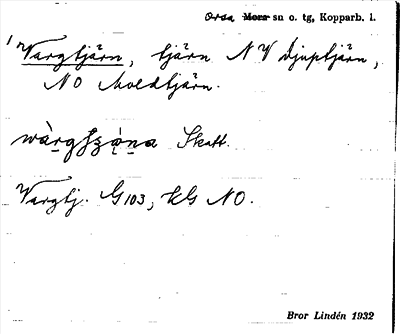 Orsa Mora sn o. tg, Kopparb. l.
1 Vargtjärn, tjärn NV Djuptjärn,
NO Noldtjärn.
Skatt.
Vargtj. G103, kG NO.
Bror Lindén 1932